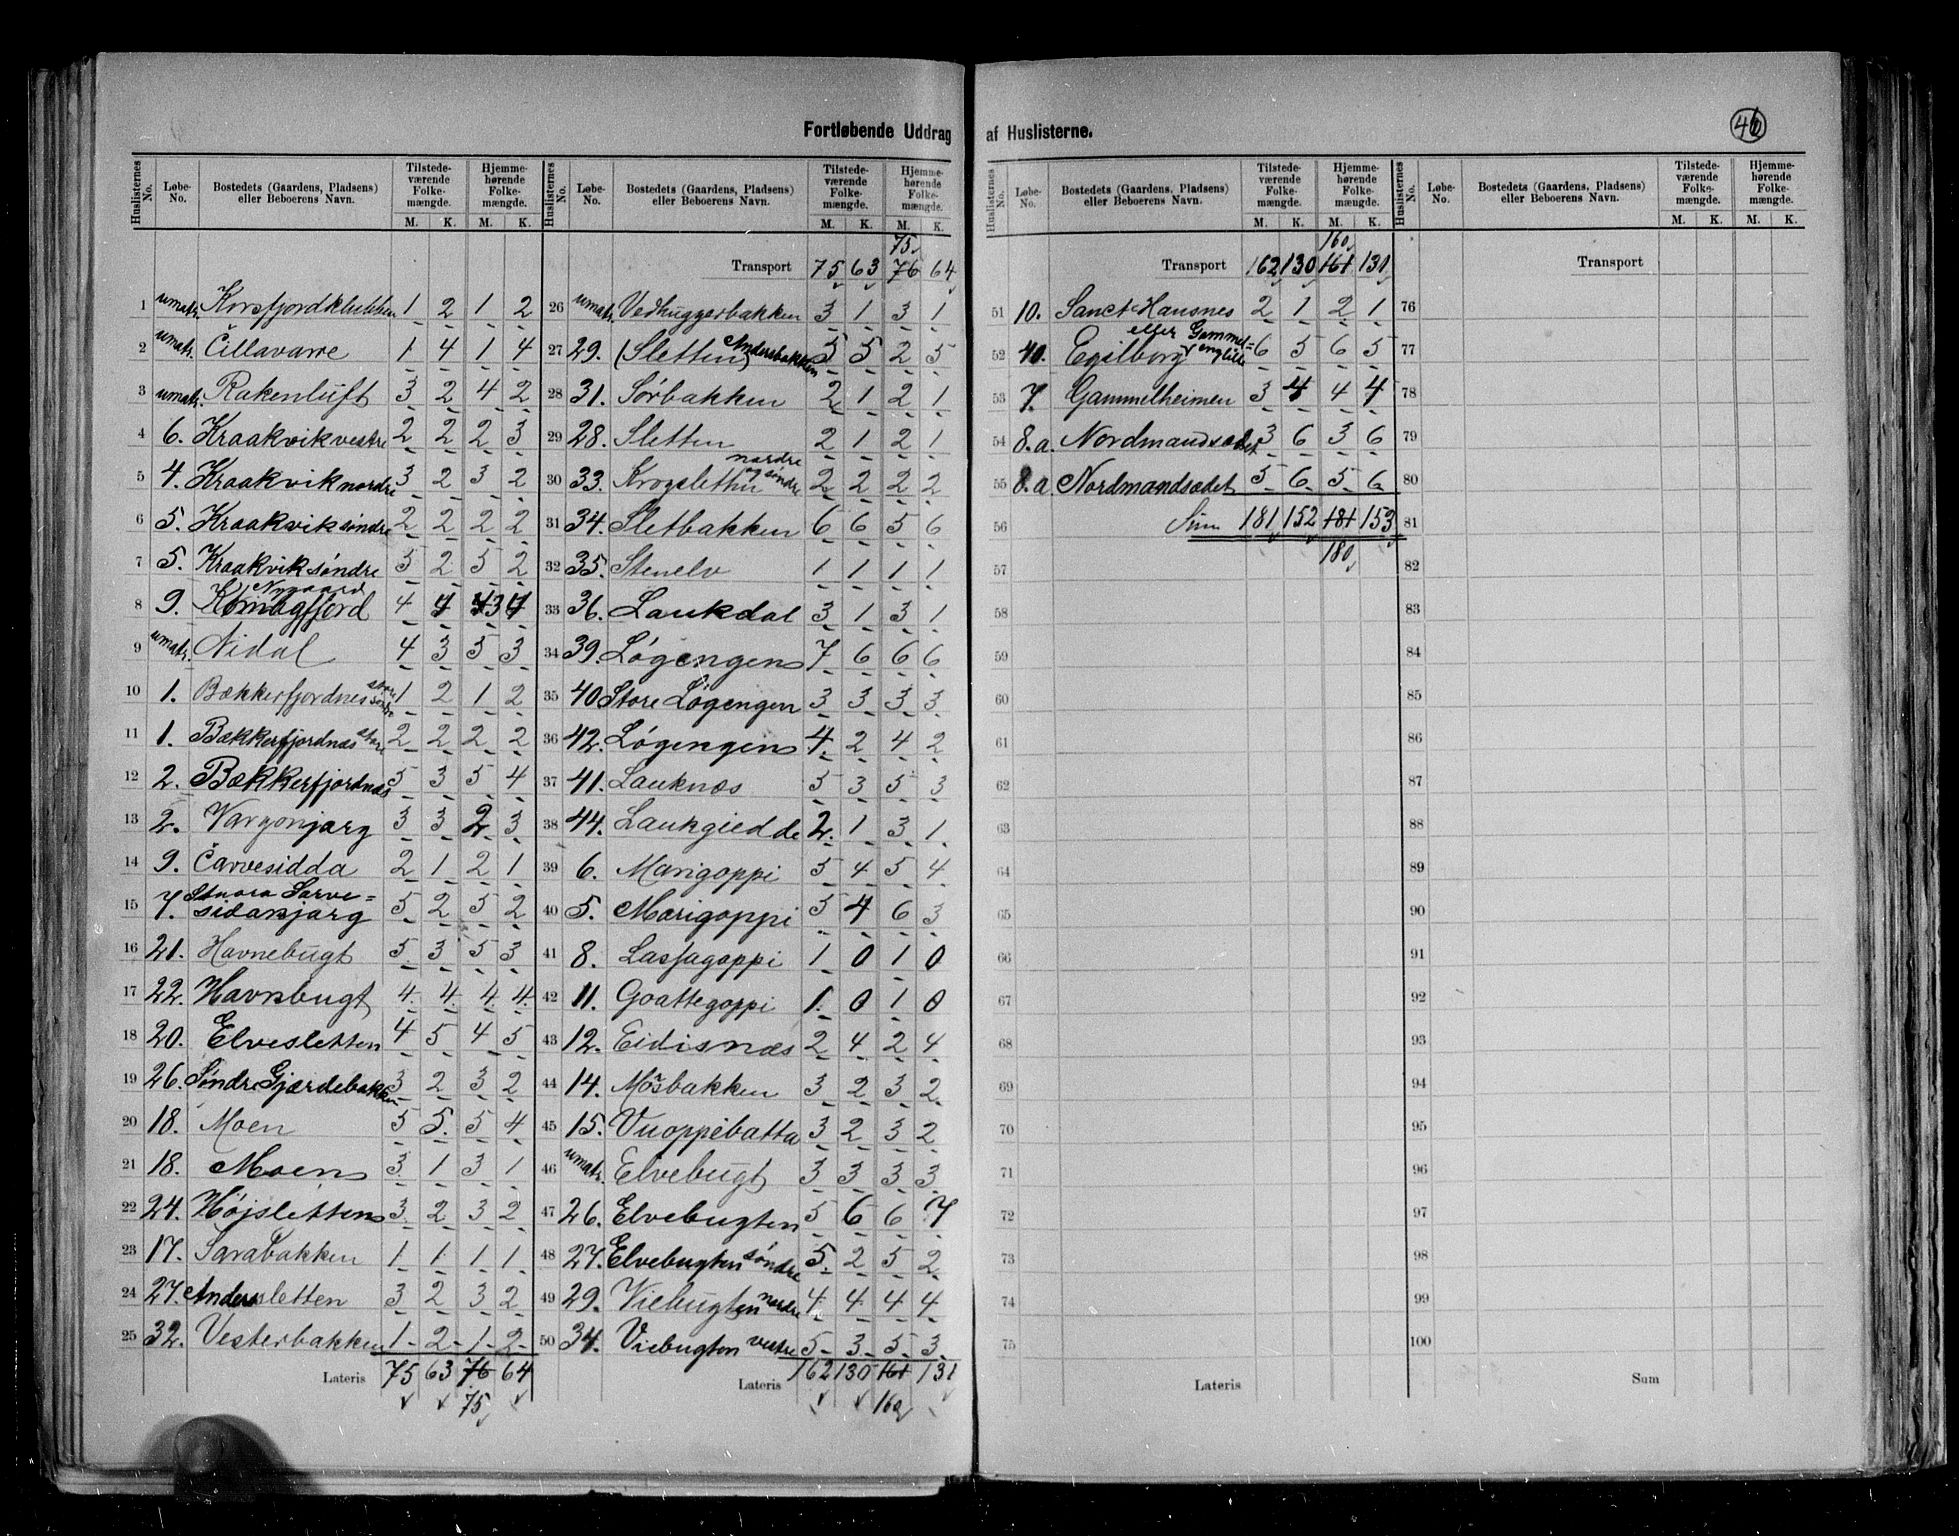 Fortløbende Uddrag af Huslisterne.
46
Huslisternes No. | Løbe-No. | Bostedets (Gaardens, Pladsens) eller Beboerens Navn. | Tilstedeværende Folkemængde. M. K. | Hjemmehørende Folkemængde. M. K.
1 umatr. Korsfjordklubben 1 2 1 2
2 umatr. Čillavarre 1 4 1 4
3 umatr. Rakenluft 3 2 4 2
4 6. Kraakvik vestre 2 2 2 3
5 4. Kraakvik nordre 3 2 3 2
6 5. Kraakvik søndre 2 2 2 2
7 5. Kraakvik søndre 5 2 5 2
Nygaard
8 9. Komagfjord 4 4 3 4
9 umatr. Nidal 4 3 5 3
10 1. Bækkerfjordnes 1 2 1 2
11 1. Bækkerfjordnæs store 2 2 2 2
12 2. Bækkerfjordnæs 5 3 5 4
13 2. Vargonjarg 3 3 2 3
14 9. Čarvesidda 2 1 2 1
15 7. Stuora Sarve=
sidanjarg 5 2 5 2
16 21. Havnebugt 5 3 5 3
17 22. Havnbugt 4 4 4 4
18 20. Elvesletten 4 5 4 5
19 26. Søndre Gjærdebakken 3 2 3 2
20 18. Moen 5 5 5 4
21 18. Moen 3 1 3 1
22 24. Højsletten 3 2 3 2
23 17. Sarabakken 1 1 1 1
24 27. Andersletten 3 2 3 2
25 32. Vesterbakken 1 2 1 2
Lateris 75 63 76 64
75
Huslisternes No. | Løbe-No. | Bostedets (Gaardens, Pladsens) eller Beboerens Navn. | Tilstedeværende Folkemængde. M. K. | Hjemmehørende Folkemængde. M. K.
75
Transport 75 63 76 64
26 umatr. Vedhuggerbakken 3 1 3 1
27 29. (Sletten) Andersbakken 5 5 2 5
28 31. Sørbakken 2 1 2 1
29 28. Sletten 2 1 2 1
nordre
30 33. Krogsletten og søndre 2 2 2 2
31 34. Sletbakken 6 6 5 6
32 35. Stenelv 1 1 1 1
33 36. Laukdal 3 1 3 1
34 39. Løgengen 7 6 6 6
35 40 Store Løgengen 3 3 3 3
36 42. Løgengen 4 2 4 2
37 41. Lauknæs 5 3 5 3
38 44. Laukgiedde 2 1 3 1
39 6. Marigoppi 5 4 5 4
40 5. Marigoppi 5 4 6 3
41 8. Lassagoppi 1 0 1 0
42 11. Goattegoppi 1 0 1 0
43 12. Eidisnæs 2 4 2 4
44 14. Mosbakken 3 2 3 2
45 15. Vuoppebatta 3 2 3 2
46 umatr. Elvebugt 3 3 3 3
47 26. Elvebugten 5 6 6 7
48 27. Elvebugten søndre 5 2 5 2
49 29. Viebugten nordre 4 4 4 4
50 34. Viebugten vestre 5 3 5 3
Lateris 162 130 161 131
160
Huslisternes No. | Løbe-No. | Bostedets (Gaardens, Pladsens) eller Beboerens Navn. | Tilstedeværende Folkemængde. M. K. | Hjemmehørende Folkemængde. M. K.
160
Transport 162 130 161 131
51 10. Sanct Hansnes 2 1 2 1
eller Gammel=
52 40. Egilborg englille 6 5 6 5
53 7. Gammelheimen 3 4 4 4
54 8.a. Nordmandsædet 3 6 3 6
55 8.a Nordmandsædet 5 6 5 6
56 Sum 181 152 181 153
57 180
58
59
60
61
62
63
64
65
66
67
68
69
70
71
72
73
74
75
Lateris
Huslisternes No. | Løbe-No. | Bostedets (Gaardens, Pladsens) eller Beboerens Navn. | Tilstedeværende Folkemængde. M. K. | Hjemmehørende Folkemængde. M. K.
Transport
76
77
78
79
80
81
82
83
84
85
86
87
88
89
90
91
92
93
94
95
96
97
98
99
100
Sum